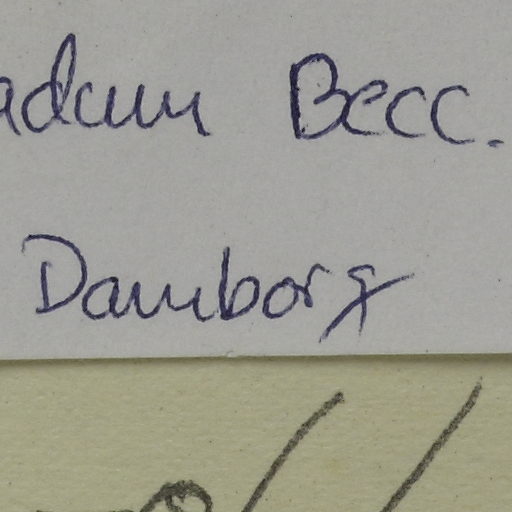 adam Becc.
Damborg